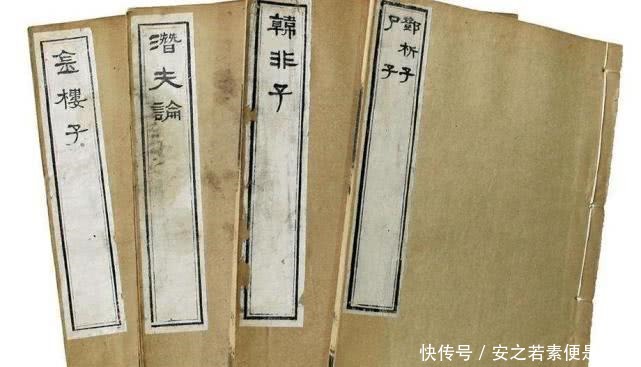 金樓子
潛夫論
韓非子
鄧析子
尸子
快传号／安之若素便是